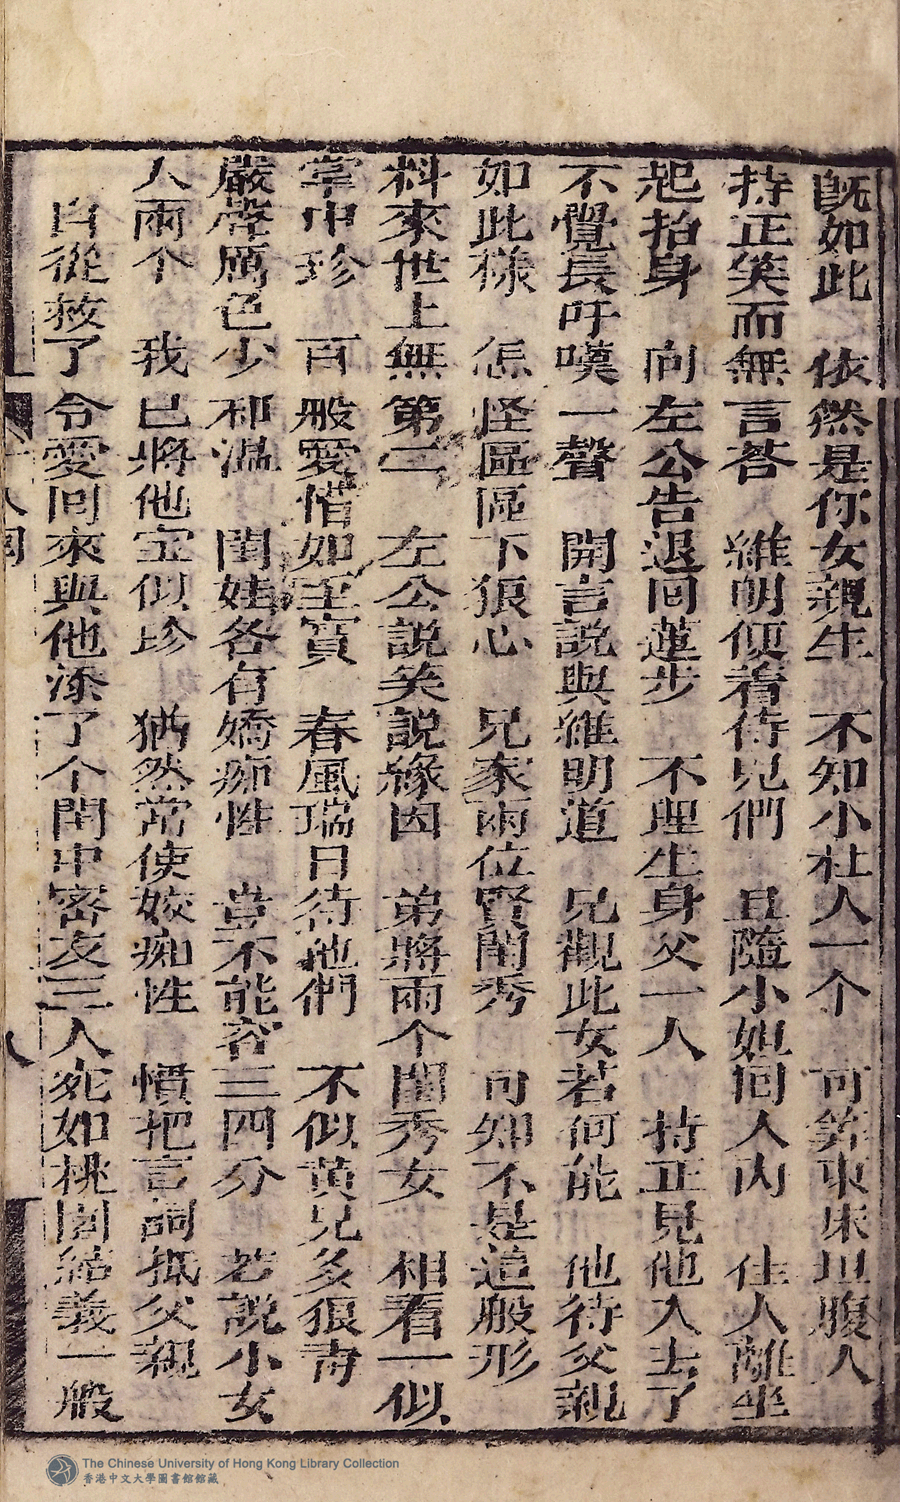 既如此　依然是你女親生　不知小杜人一个　可筭東床坦腹人
持正笑而無言荅　維明便着侍兒們　且隨小姐同人內　佳人離坐
起抬身　向左公告退回蓮步　不理生身父一人　持正見他入去了
不覺長吁嘆一聲　開言説與維明道　兄觀此女若何能　他待父親
如此樣　怎怪區區下狠心　兄家兩位賢閨秀　可知不是這般形
料來世上無第二　左公説笑説緣因　弟將兩个閨秀女　相看一似
掌中珍　百般愛惜如至寳　春風瑞日待他們　不似黄兄多狠
嚴聲厲色少和温　閨娃各有嬌痴性　豈不能容三四分　若説小女
人兩个　我已將他宝似珍　猶然常使姣痴性　慣把言詞抵父親
自從救了令愛回來與他添了个閨中密友三人宛如桃園結義一般
八
The Chinese University of Hong Kong Library Collection
香港中文大學圖書館館藏